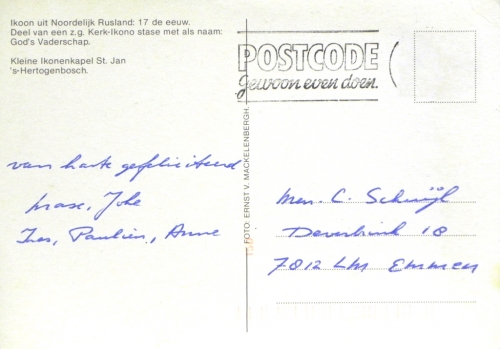 Ikoon uit Noordelijk Rusland: 17 de eeuw.
Deel van een z.g. Kerk-Ikono stase met als naam:
God's Vaderschap.
Kleine Ikonenkapel St. Jan
's-Hertogenbosch.
POSTCODE
gewoon even doen.
van harte gefeliciteerd
Joke
Ines, Paulien, Anne
FOTO: ERNST V. MACKELENBERGH.
C.
18
7812 Emmen